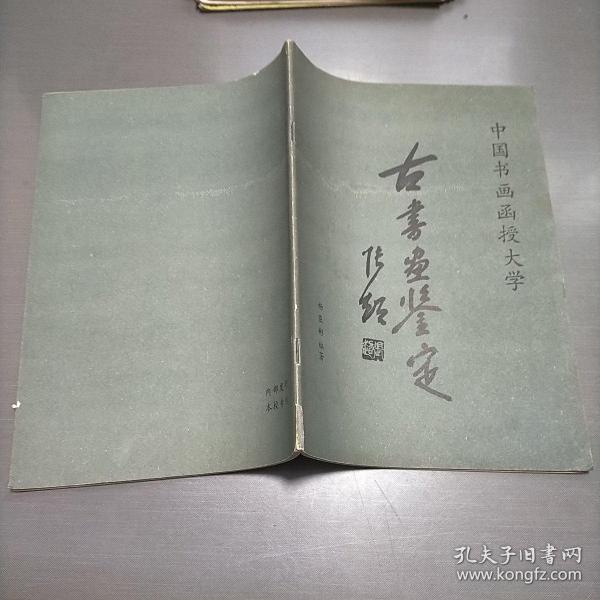 中国书画函授大学
古书画鉴定
杨臣彬编著
内部
本校
孔夫子旧书网
www.kongfz.com